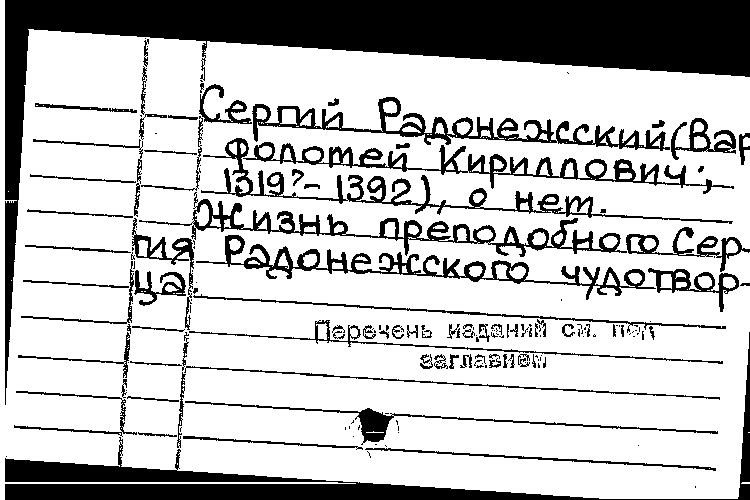 Сергий Радонежский (Вар
фоломей Кириллович;
1319?-1392), о нем.
Жизнь преподобного Сер-
гия Радонежского чудотвор-
ца.
Перечень изданий см. под
заглавием